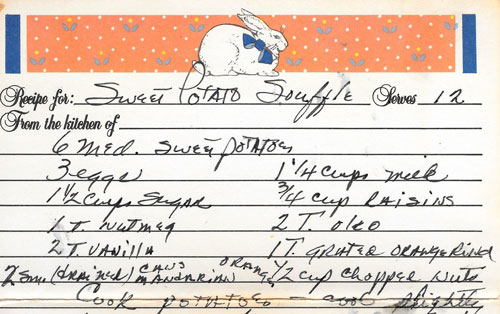 Recipe for: Sweet Potato Souffle Serves 12
From the kitchen of
6 Med. Sweet potatoes
3 eggs 1 1/4 cups milk
1 1/2 cups Sugar 3/4 cup raisins
1 T. Nutmeg 2 T. oleo
2 T. Vanilla 1 T. grated orange rind
2 Sm (drained) cans mandarian orange 1/2 cup chopped nuts
Cook potatoes - cool slightly